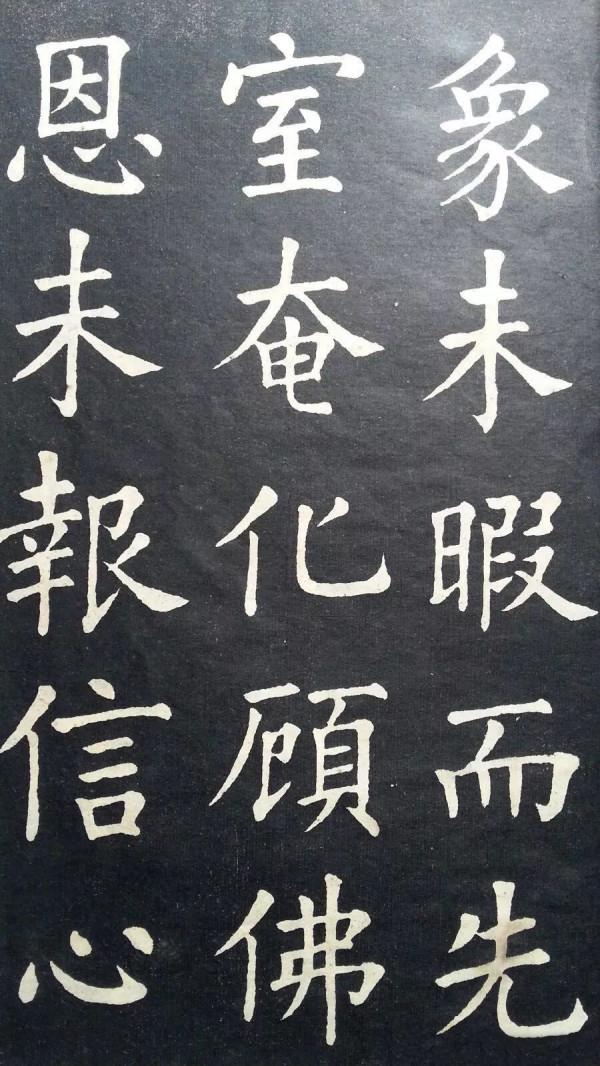 象未暇而先
室奄化顧佛
恩未報信心